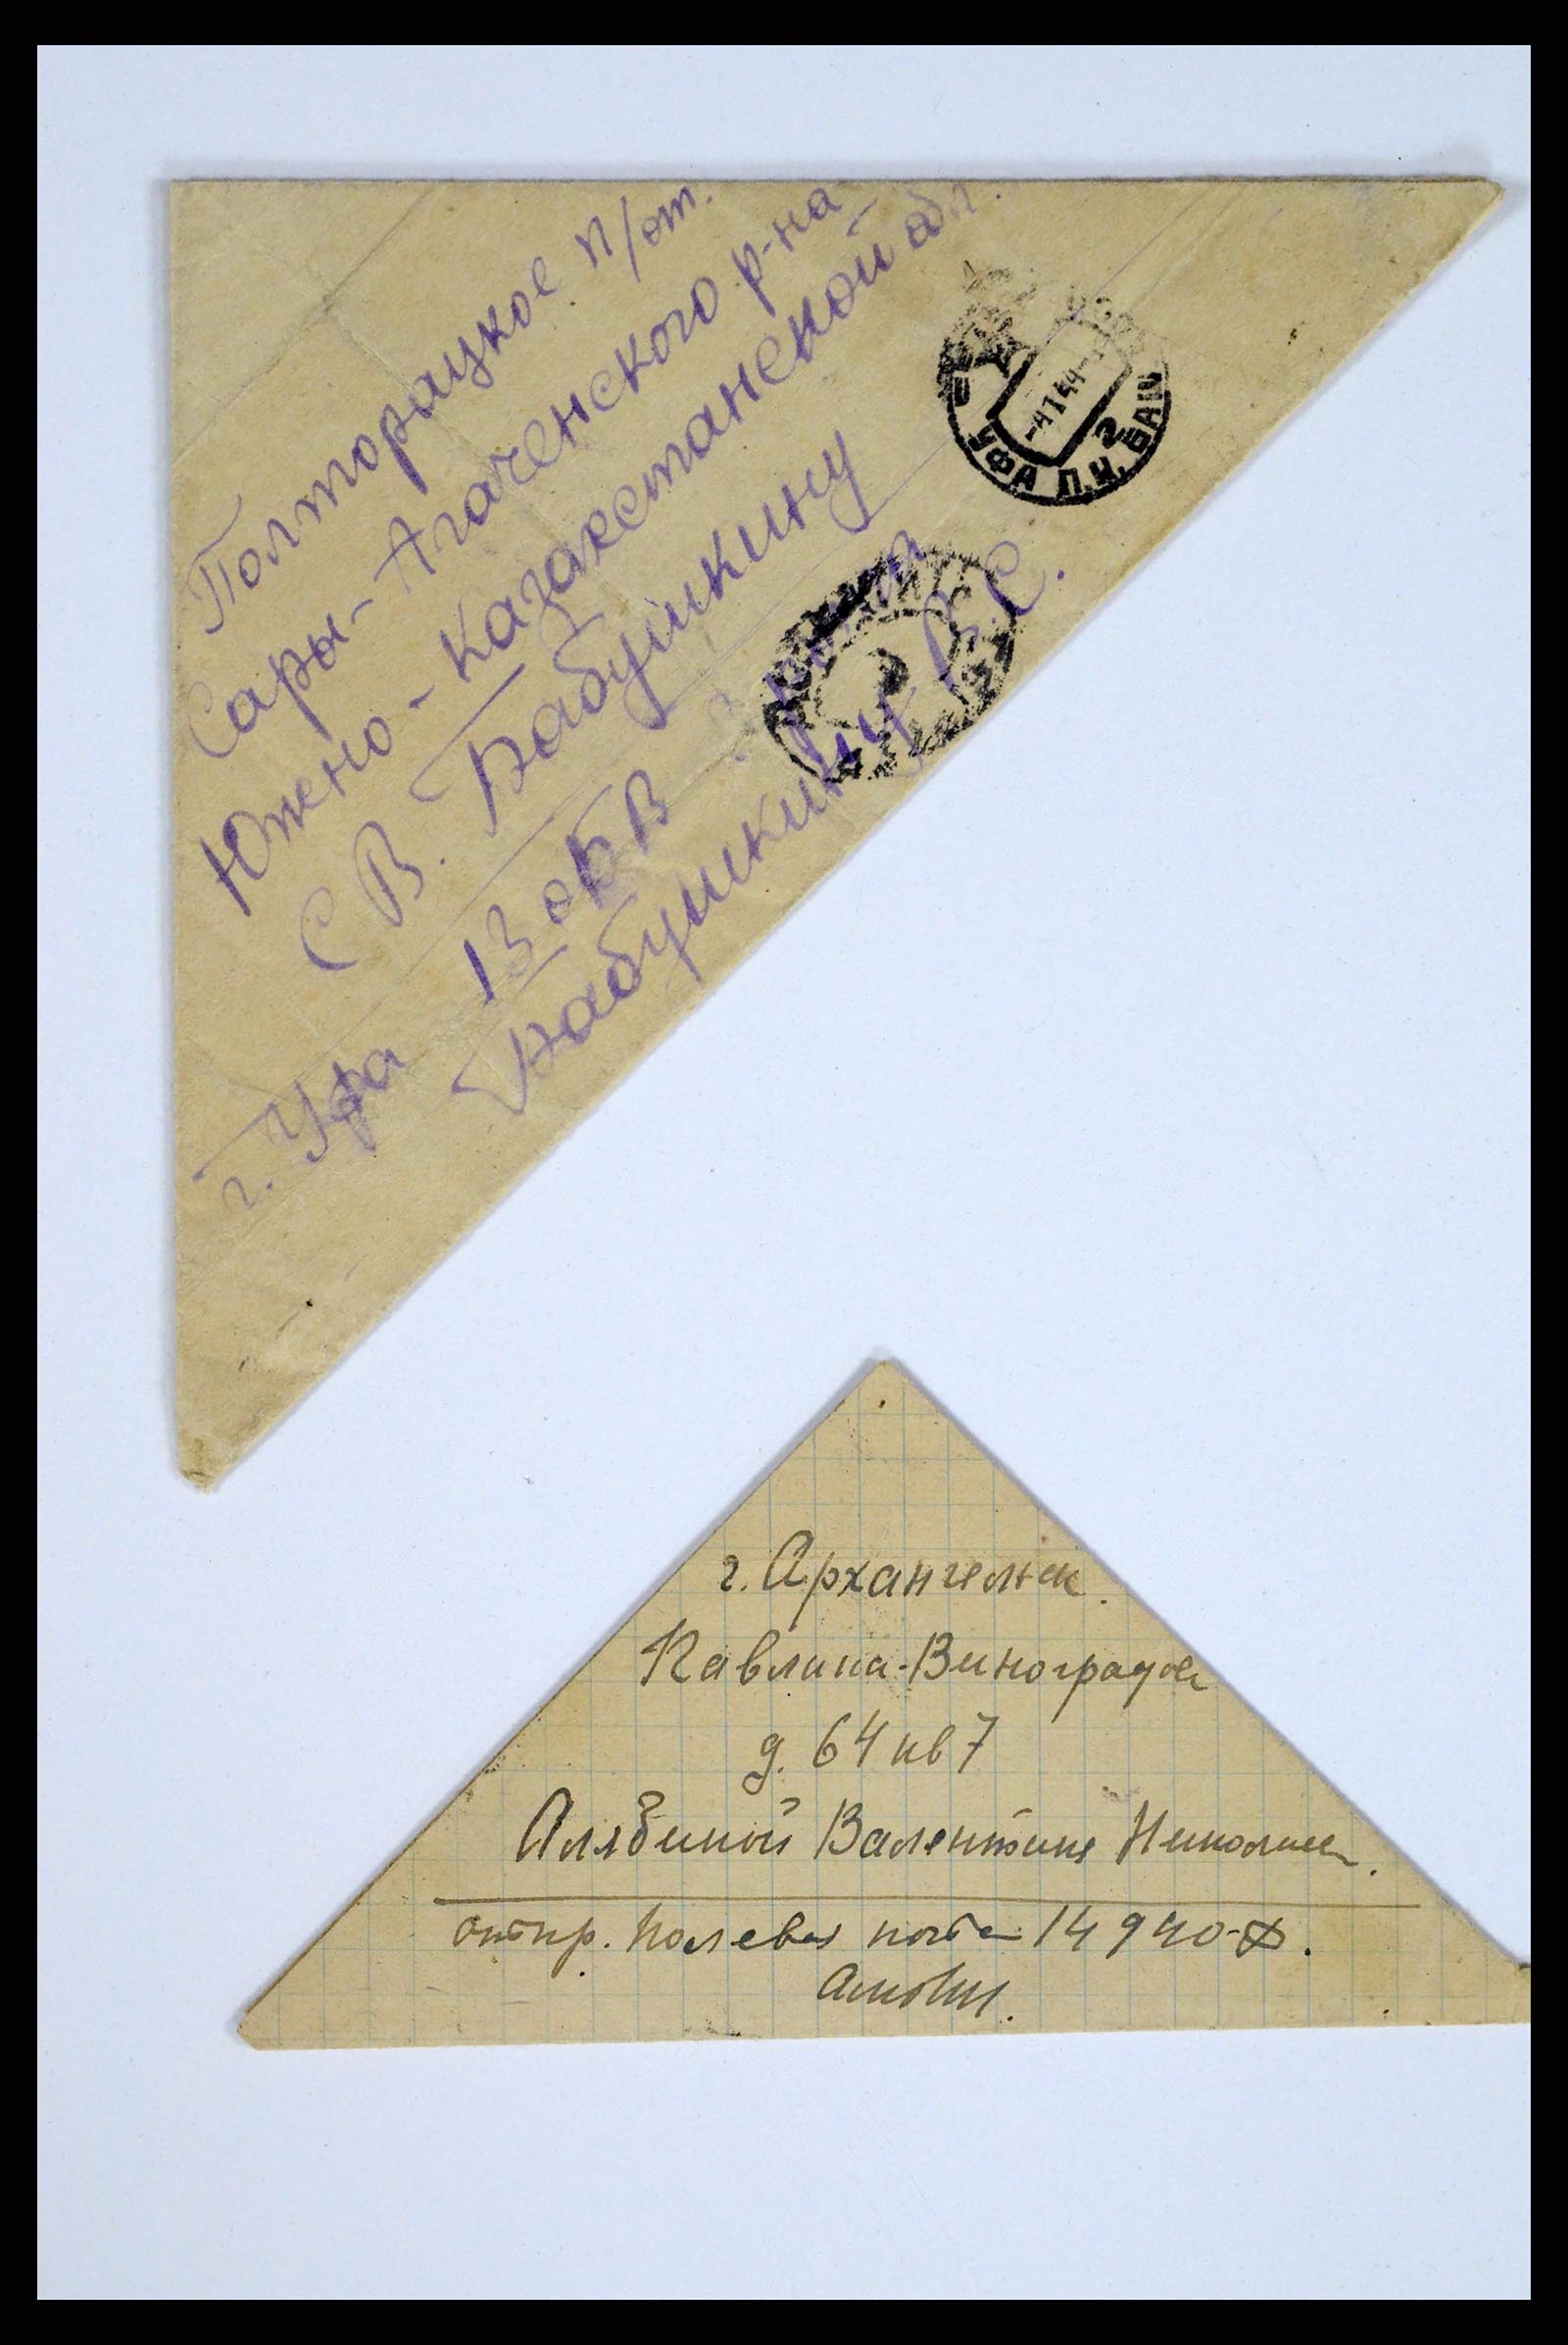 Полторацкое п/от.
Сары-Агаченского р-на
Южно-Казакстанской обл.
С В. Бабушкину
г. Уфа 13 обв
Бабушкину В.С.
УФА П.Н. БАШ
-4 1 44-
2
г. Архангельск.
Павлина-Виноградов
д. 64 кв 7
Алябиной Валентине Николаев.
отпр. Полевая почта 14940-Ф.